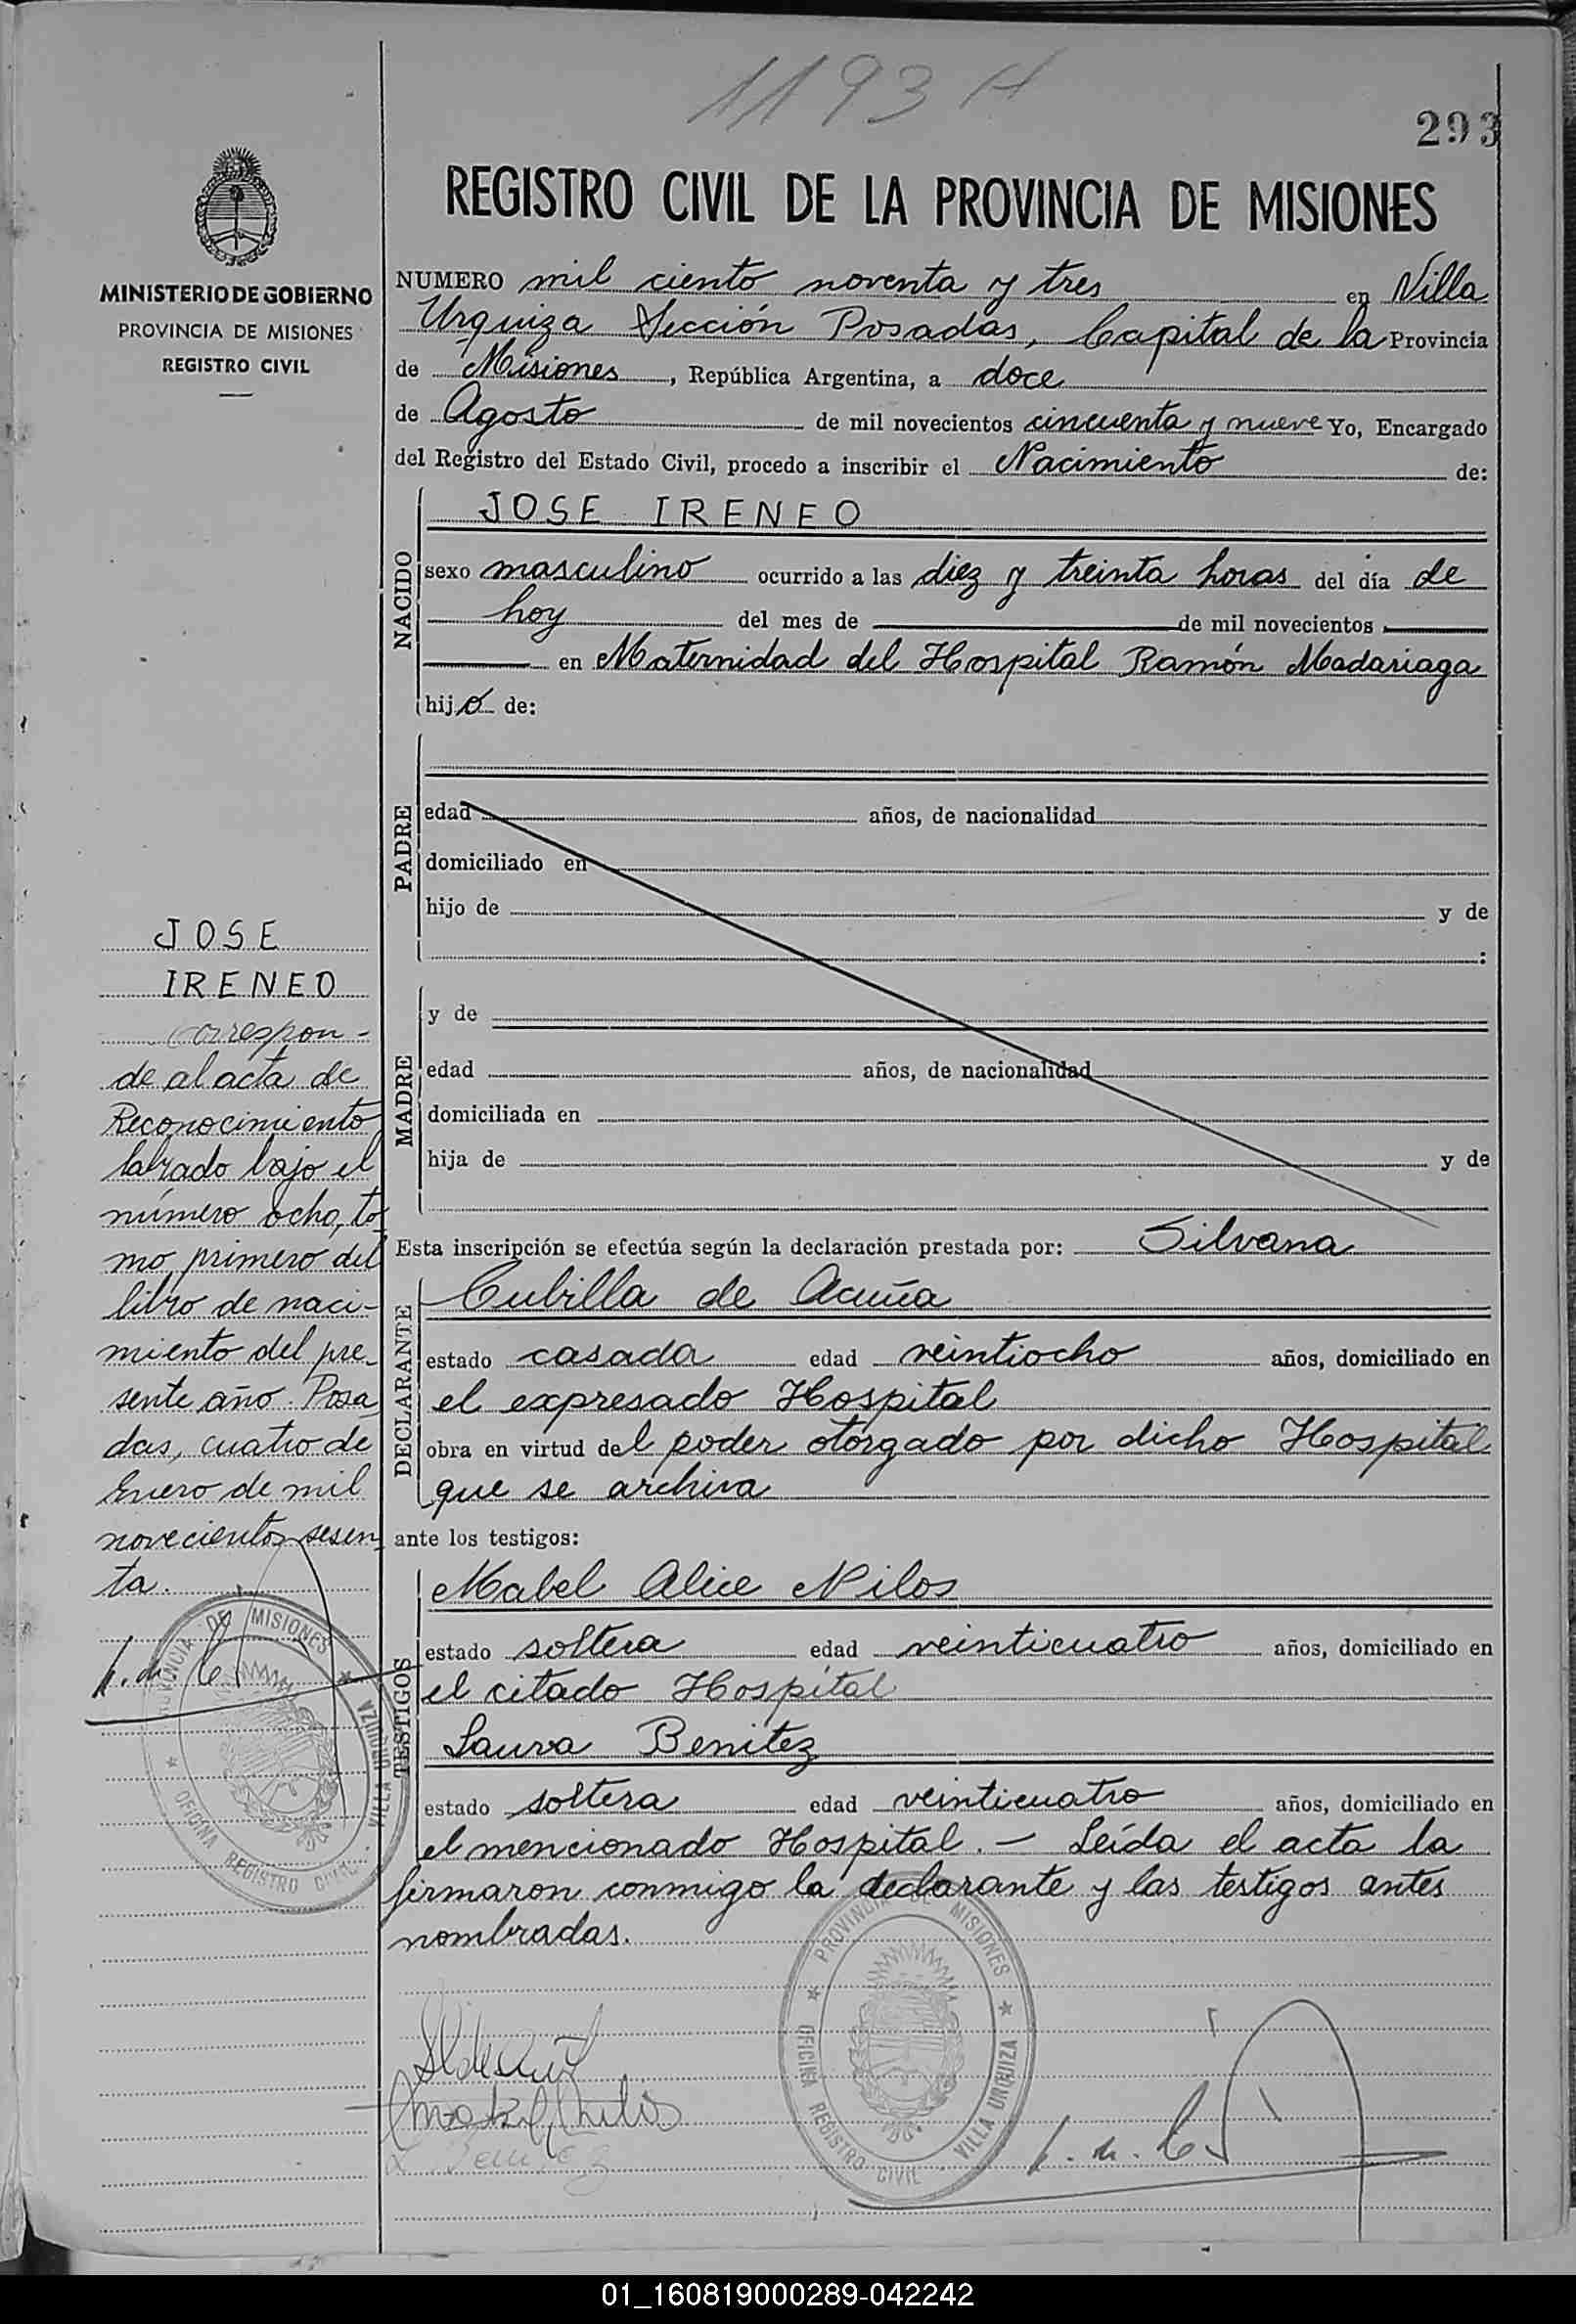 1193 H
293
REGISTRO CIVIL DE LA PROVINCIA DE MISIONES
MINISTERIO DE GOBIERNO
PROVINCIA DE MISIONES
REGISTRO CIVIL
NUMERO mil ciento noventa y tres en Villa
Urquiza Sección Posadas, Capital de la Provincia
de Misiones, República Argentina, a doce
de Agosto de mil novecientos cincuenta y nueve Yo, Encargado
del Registro del Estado Civil, procedo a inscribir el Nacimiento de:
NACIDO
JOSE IRENEO
sexo masculino ocurrido a las diez y treinta horas del día de
hoy del mes de de mil novecientos
en Maternidad del Hospital Ramón Madariaga
hijo de:
PADRE
edad años, de nacionalidad
domiciliado en
hijo de y de
:
MADRE
y de
edad años, de nacionalidad
domiciliada en
hija de y de
Esta inscripción se efectúa según la declaración prestada por: Silvana
DECLARANTE
Cubilla de Acuña
estado casada edad veintiocho años, domiciliado en
el expresado Hospital
obra en virtud del poder otorgado por dicho Hospital
que se archiva
ante los testigos:
TESTIGOS
Mabel Alice Nilos
estado soltera edad veinticuatro años, domiciliado en
el citado Hospital
Laura Benitez
estado soltera edad veinticuatro años, domiciliado en
el mencionado Hospital. — Leída el acta la
firmaron conmigo la declarante y las testigos antes
nombradas.
JOSE
IRENEO
correspon-
de al acta de
Reconocimiento
labrado bajo el
número ocho, to
mo primero del
libro de naci-
miento del pre-
sente año. Posa
das, cuatro de
Enero de mil
novecientos sesen
ta.
PROVINCIA DE MISIONES
OFICINA REGISTRO CIVIL - VILLA URQUIZA
PROVINCIA DE MISIONES
OFICINA REGISTRO CIVIL - VILLA URQUIZA
L. Benitez
01_160819000289-042242